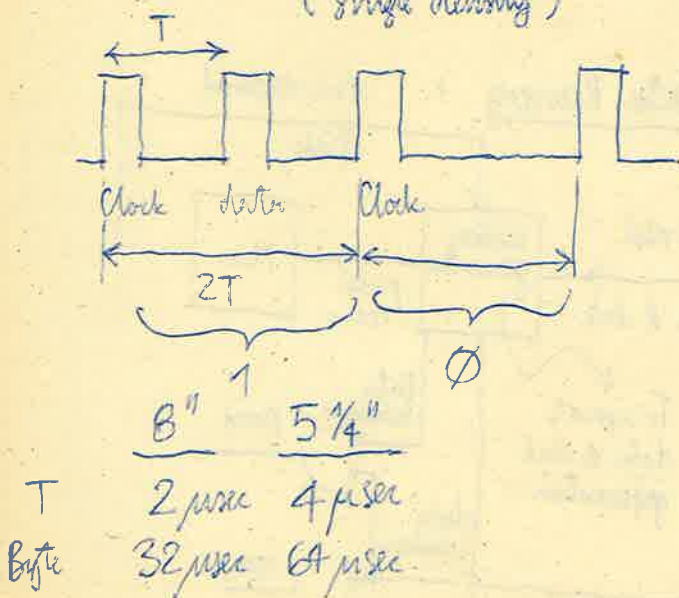 (single density)
T
Clock data Clock
2T
1 Ø
8" 5 1/4"
T 2 µsec 4 µsec
Byte 32 µsec 64 µsec